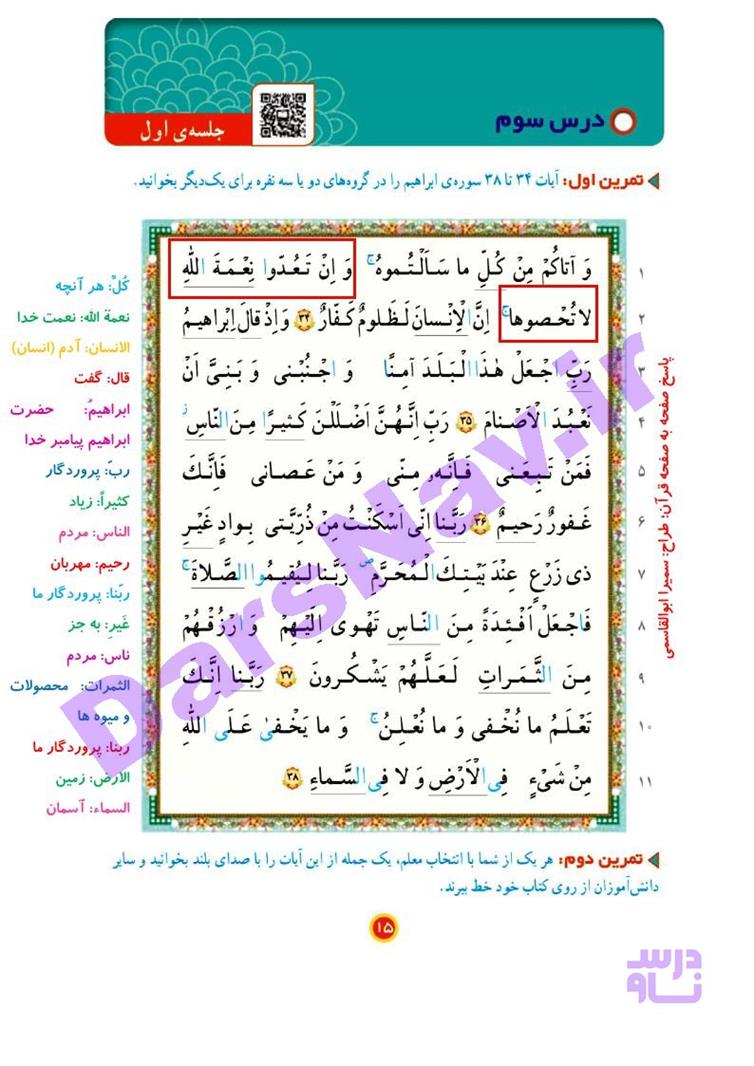 درس سوم
جلسه‌ی اول
تمرین اول: آیات ۳۴ تا ۳۸ سوره‌ی ابراهیم را در گروه‌های دو یا سه نفره برای یک‌دیگر بخوانید.
۱ وَ آتاکُمْ مِنْ کُلِّ ما سَاَلْتُموهُ ۚ وَ اِنْ تَعُدّوا نِعْمَةَ اللّٰهِ
۲ لا تُحْصوها ۗ اِنَّ الْاِنْسانَ لَظَلومٌ کَفّارٌ ۳۴ وَ اِذْ قالَ اِبْراهیمُ
۳ رَبِّ اجْعَلْ هٰذَا الْبَلَدَ آمِنًا وَ اجْنُبْنی وَ بَنِیَّ اَنْ
۴ نَعْبُدَ الْاَصْنامَ ۳۵ رَبِّ اِنَّهُنَّ اَضْلَلْنَ کَثیرًا مِنَ النّاسِ ۖ
۵ فَمَنْ تَبِعَنی فَاِنَّهو مِنّی وَ مَنْ عَصانی فَاِنَّکَ
۶ غَفورٌ رَحیمٌ ۳۶ رَبَّنا اِنّی اَسْکَنْتُ مِنْ ذُرِّیَّتی بِوادٍ غَیْرِ
۷ ذی زَرْعٍ عِنْدَ بَیْتِکَ الْمُحَرَّمِ ۙ رَبَّنا لِیُقیمُوا الصَّلاةَ ۚ
۸ فَاجْعَلْ اَفْئِدَةً مِنَ النّاسِ تَهْوی اِلَیْهِمْ وَ ارْزُقْهُمْ
۹ مِنَ الثَّمَراتِ لَعَلَّهُمْ یَشْکُرونَ ۳۷ رَبَّنا اِنَّکَ
۱۰ تَعْلَمُ ما نُخْفی وَ ما نُعْلِنُ ۗ وَ ما یَخْفیٰ عَلَی اللّٰهِ
۱۱ مِنْ شَیْءٍ فِی الْاَرْضِ وَ لا فِی السَّماءِ ۳۸
کُلِّ: هر آنچه
نعمة الله: نعمت خدا
الانسان: آدم (انسان)
قال: گفت
ابراهیمُ: حضرت
ابراهیم پیامبر خدا
رب: پروردگار
کثیراً: زیاد
الناس: مردم
رحیم: مهربان
ربّنا: پروردگار ما
غَیرِ: به جز
ناس: مردم
الثمرات: محصولات
و میوه ها
ربنا: پروردگار ما
الارض: زمین
السماء: آسمان
پاسخ صفحه به صفحه قرآن: طراح: سمیرا ابوالقاسمی
DarsNav.ir
تمرین دوم: هر یک از شما با انتخاب معلم، یک جمله از این آیات را با صدای بلند بخوانید و سایر
دانش‌آموزان از روی کتاب خود خط ببرند.
۱۵
درس
ناو